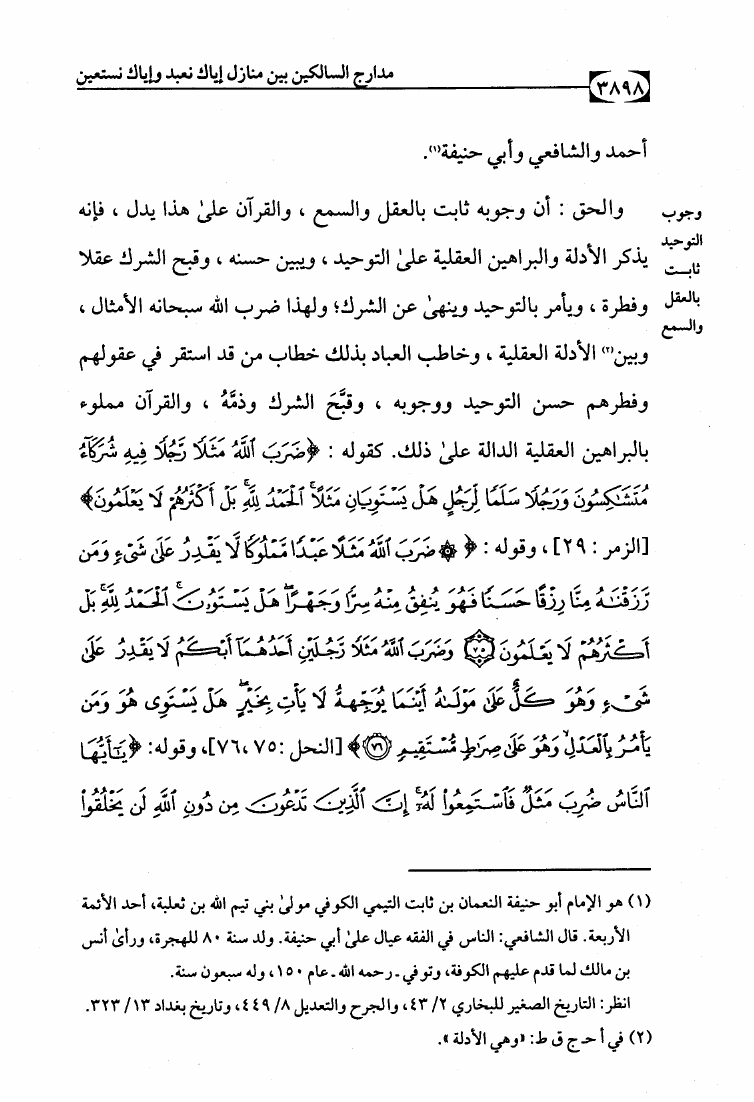 مدارج السالكين بين منازل إياك نعبد وإياك نستعين
٣٨٩٨
أحمد والشافعي وأبي حنيفة(١).
وجوب التوحيد ثابت بالعقل والسمع
والحق : أن وجوبه ثابت بالعقل والسمع ، والقرآن علىٰ هذا يدل ، فإنه
يذكر الأدلة والبراهين العقلية علىٰ التوحيد ، ويبين حسنه ، وقبح الشرك عقلا
وفطرة ، ويأمر بالتوحيد وينهىٰ عن الشرك؛ ولهذا ضرب الله سبحانه الأمثال ،
وبين(٢) الأدلة العقلية ، وخاطب العباد بذلك خطاب من قد استقر في عقولهم
وفطرهم حسن التوحيد ووجوبه ، وقبَّحَ الشرك وذمَّهُ ، والقرآن مملوء
بالبراهين العقلية الدالة علىٰ ذلك. كقوله : ﴿ضَرَبَ ٱللَّهُ مَثَلًا رَّجُلًا فِيهِ شُرَكَآءُ
مُتَشَٰكِسُونَ وَرَجُلًا سَلَمًا لِّرَجُلٍ هَلْ يَسْتَوِيَانِ مَثَلًا ۚ ٱلْحَمْدُ لِلَّهِ ۚ بَلْ أَكْثَرُهُمْ لَا يَعْلَمُونَ﴾
[الزمر : ٢٩] ، وقوله : ﴿ ۞ ضَرَبَ ٱللَّهُ مَثَلًا عَبْدًا مَّمْلُوكًا لَّا يَقْدِرُ عَلَىٰ شَىْءٍ وَمَن
رَّزَقْنَٰهُ مِنَّا رِزْقًا حَسَنًا فَهُوَ يُنفِقُ مِنْهُ سِرًّا وَجَهْرًا ۖ هَلْ يَسْتَوُۥنَ ۚ ٱلْحَمْدُ لِلَّهِ ۚ بَلْ
أَكْثَرُهُمْ لَا يَعْلَمُونَ ٧٥ وَضَرَبَ ٱللَّهُ مَثَلًا رَّجُلَيْنِ أَحَدُهُمَآ أَبْكَمُ لَا يَقْدِرُ عَلَىٰ
شَىْءٍ وَهُوَ كَلٌّ عَلَىٰ مَوْلَىٰهُ أَيْنَمَا يُوَجِّههُّ لَا يَأْتِ بِخَيْرٍ ۖ هَلْ يَسْتَوِى هُوَ وَمَن
يَأْمُرُ بِٱلْعَدْلِ ۙ وَهُوَ عَلَىٰ صِرَٰطٍ مُّسْتَقِيمٍ ٧٦﴾ [النحل : ٧٥ ، ٧٦]، وقوله: ﴿يَٰٓأَيُّهَا
ٱلنَّاسُ ضُرِبَ مَثَلٌ فَٱسْتَمِعُوا۟ لَهُۥٓ ۚ إِنَّ ٱلَّذِينَ تَدْعُونَ مِن دُونِ ٱللَّهِ لَن يَخْلُقُوا۟
(١) هو الإمام أبو حنيفة النعمان بن ثابت التيمي الكوفي مولىٰ بني تيم الله بن ثعلبة، أحد الأئمة
الأربعة. قال الشافعي: الناس في الفقه عيال علىٰ أبي حنيفة. ولد سنة ٨٠ للهجرة، ورأىٰ أنس
بن مالك لما قدم عليهم الكوفة، وتوفي ـ رحمه الله ـ عام ١٥٠، وله سبعون سنة.
انظر: التاريخ الصغير للبخاري ٢/ ٤٣، والجرح والتعديل ٨/ ٤٤٩، وتاريخ بغداد ١٣/ ٣٢٣.
(٢) في أ حـ ج ق ط: «وهي الأدلة ».